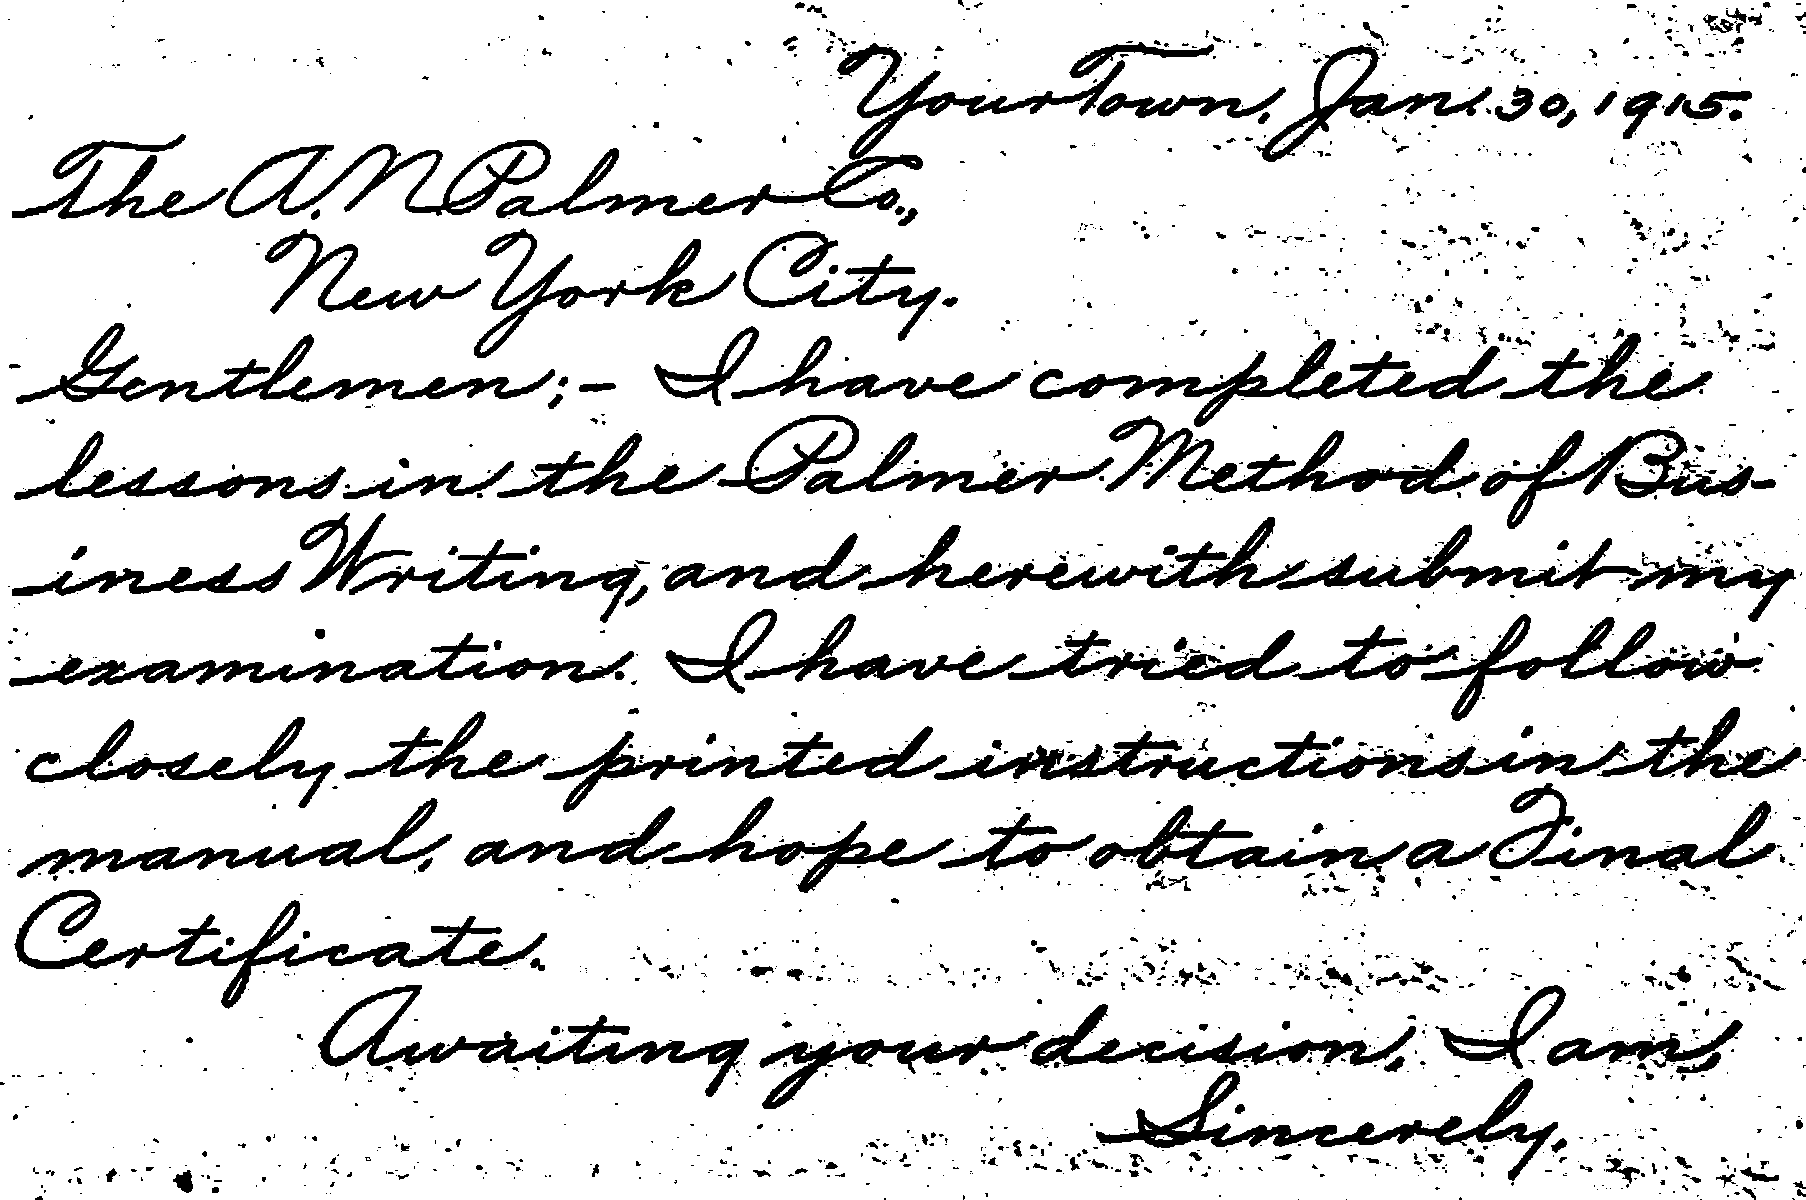 Your Town, Jan. 30, 1915.
The A. N. Palmer Co.,
New York City.
Gentlemen;- I have completed the
lessons in the Palmer Method of Bus-
iness Writing, and herewith submit my
examination. I have tried to follow
closely the printed instructions in the
manual, and hope to obtain a Final
Certificate.
Awaiting your decision, I am,
Sincerely,